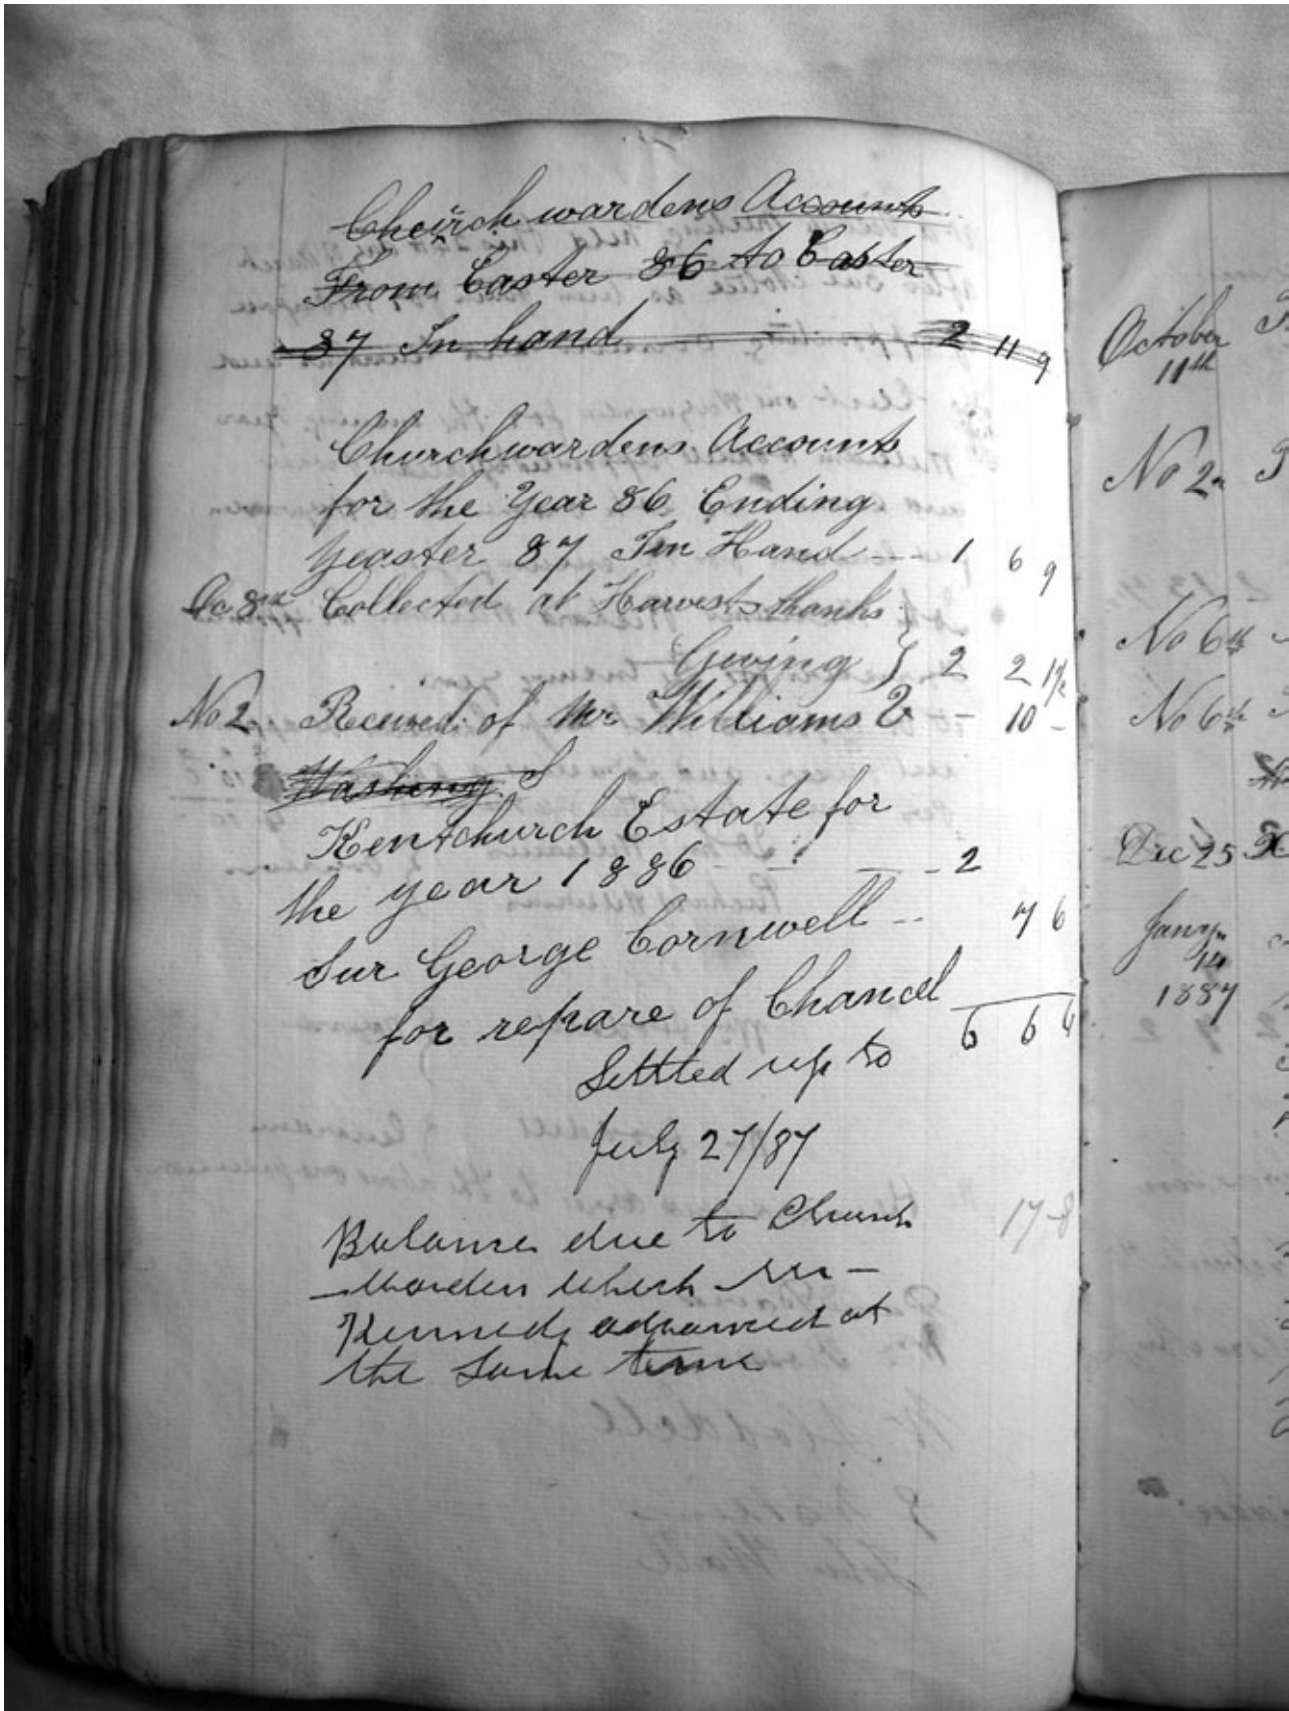 Churchwardens Accounts
From Easter 86 to Easter
87 In hand 2 11 9
Churchwardens Accounts
for the Year 86 Ending
Yeaster 87 Inn Hand --- 1 6 9
Oc 8th Collected at Harvests thanks
Geving } 2 2 1½
No 2 Receved of Mr Williams - 10 -
Washing
Kentchurch Estate for
the year 1886 - - - 2
Sur George Cornwell -- 7 6
for repare of Chancel
6 6 4
Settled up to
July 27/87
Balance due to Church 17-8
-Warden which Mr -
Kennedy advanced at
the same time
October
11th
No 2
No 6th
No 6th
Dec 25
Jany
14
1887